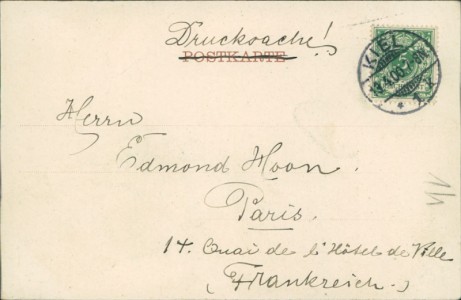 Drucksache!
POSTKARTE
KIEL
Herrn
Edmond Hoon.
Paris.
14. Quai de l'Hôtel de Ville
(Frankreich.)